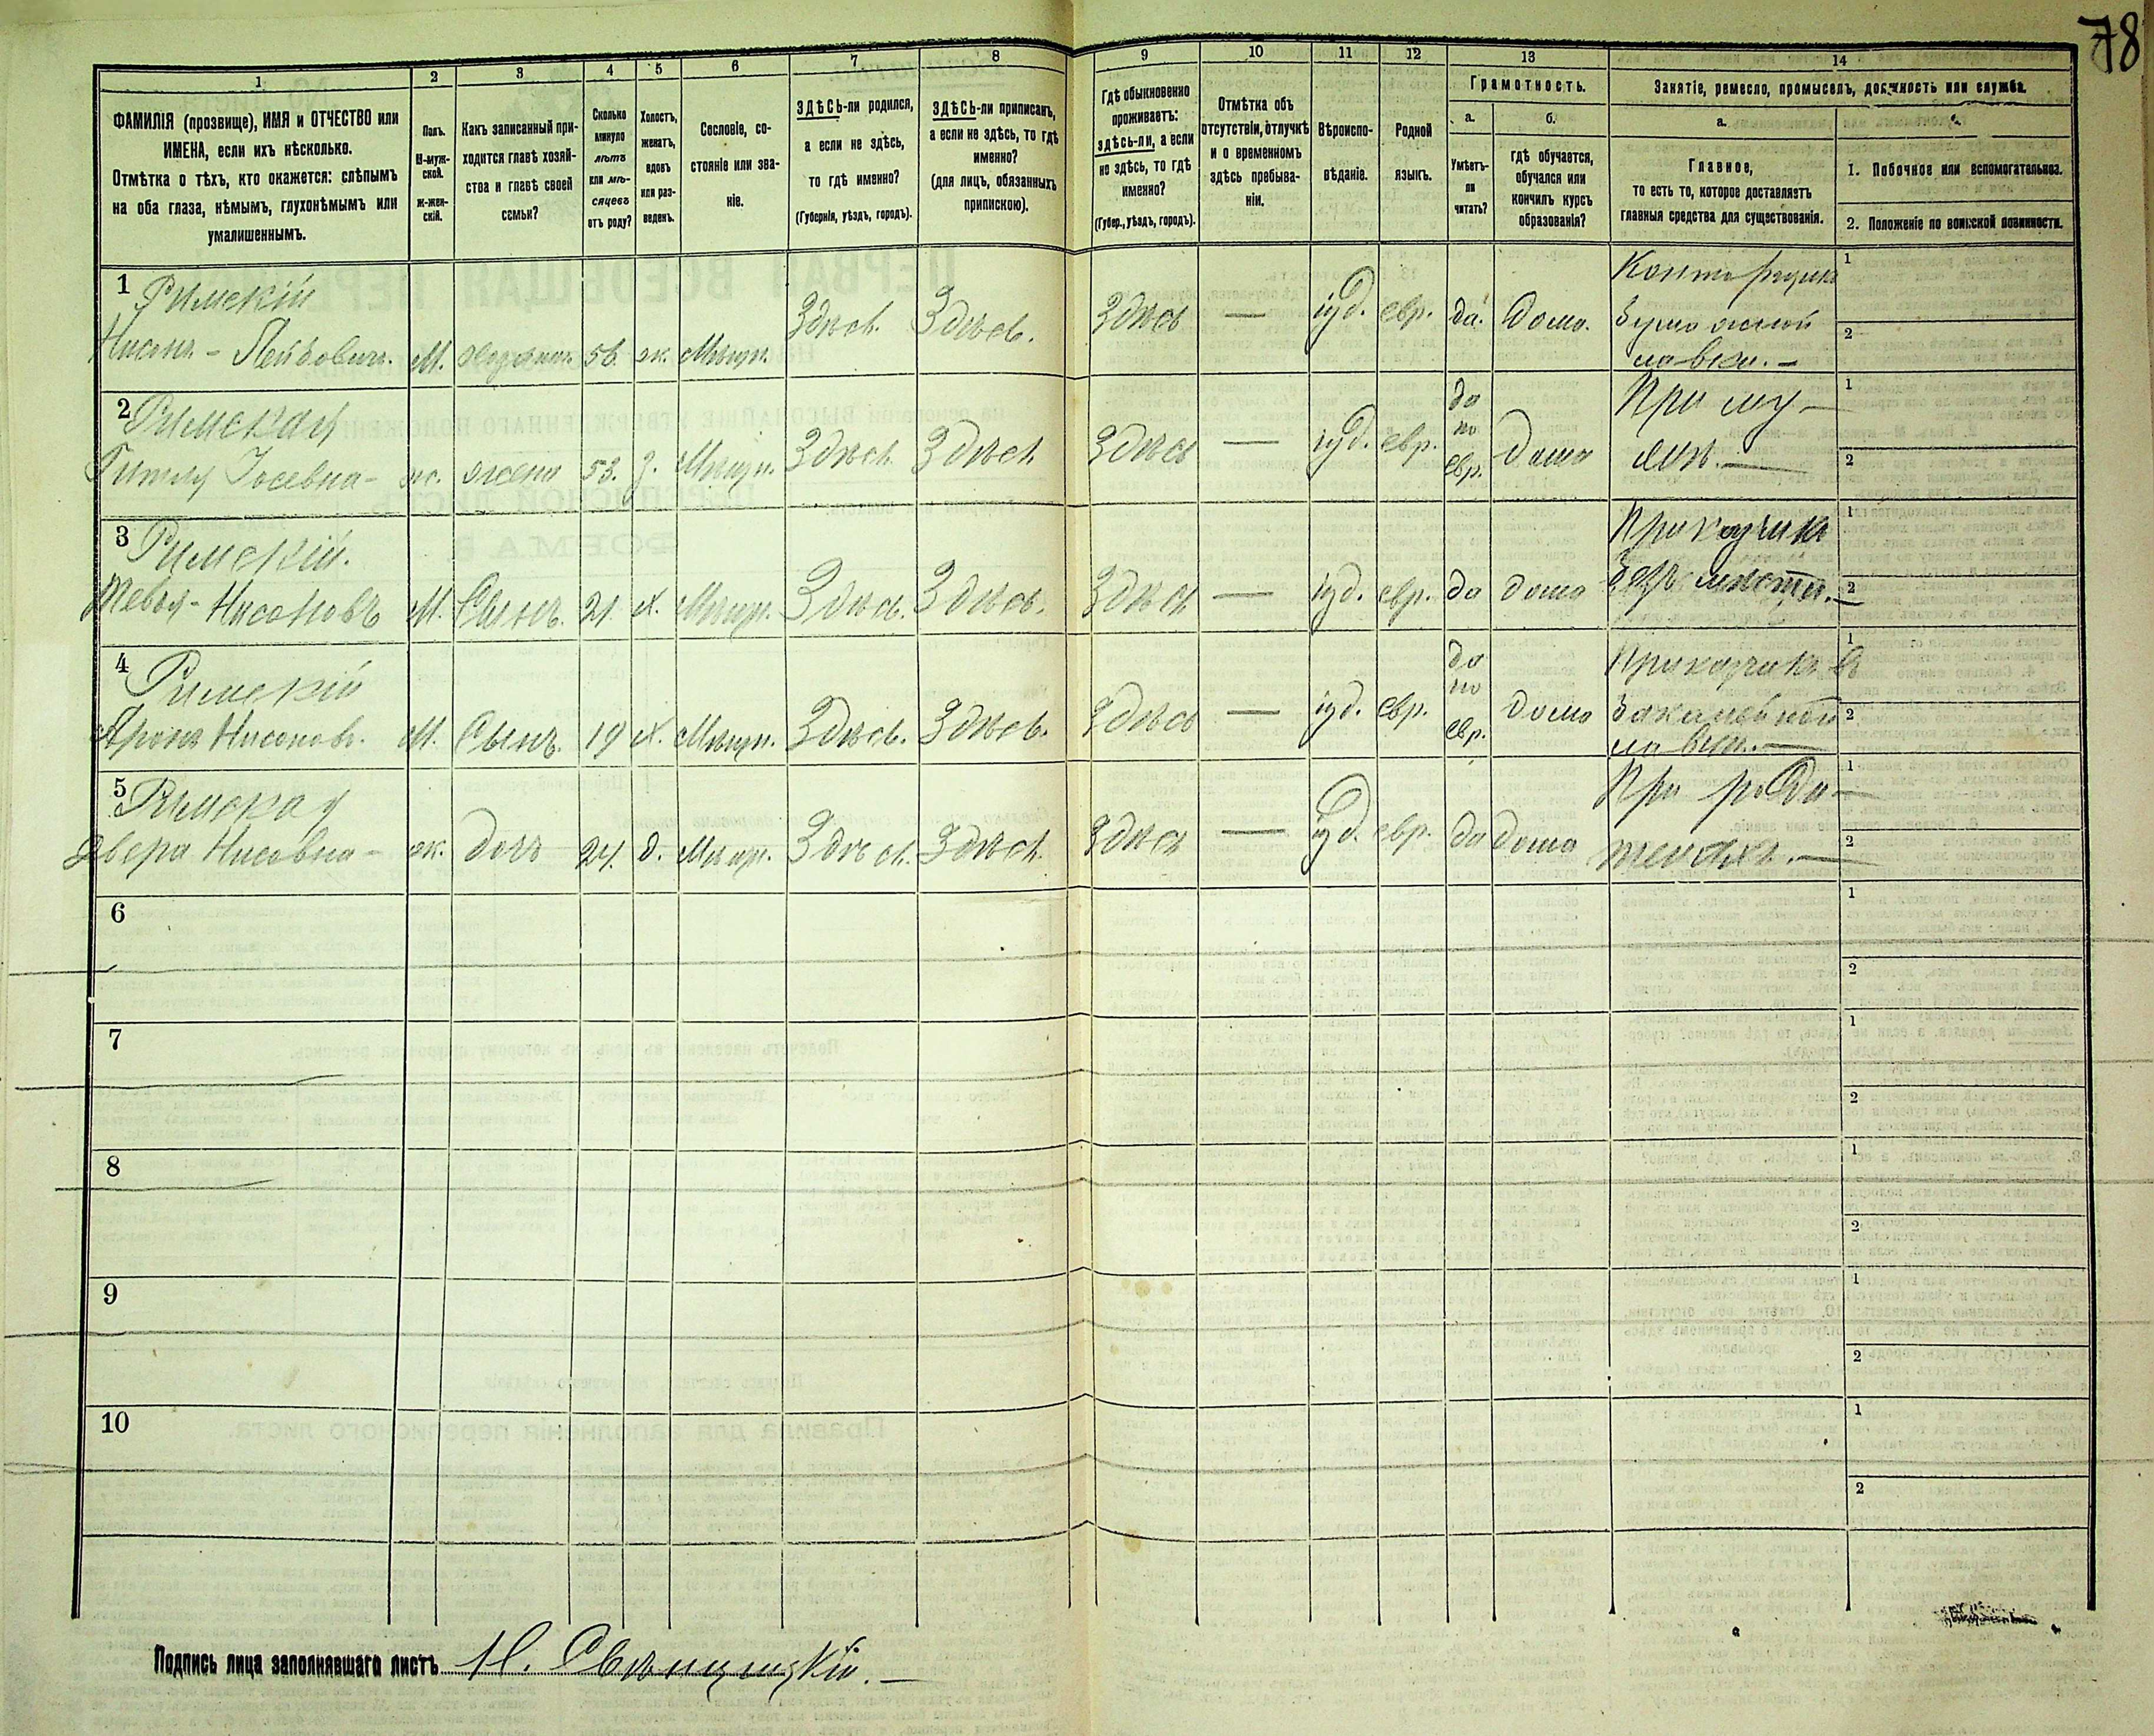 78
1 2 3 4 5 6 7 8 9 10 11 12 13 14
ФАМИЛІЯ (прозвище), ИМЯ и ОТЧЕСТВО или
ИМЕНА, если ихъ нѣсколько.
Отмѣтка о тѣхъ, кто окажется: слѣпымъ
на оба глаза, нѣмымъ, глухонѣмымъ или
умалишеннымъ.
Полъ.
М-муж-
ской.
ж-жен-
скій.
Какъ записанный при-
ходится главѣ хозяй-
ства и главѣ своей
семьи?
Сколько
минуло
лѣтъ
или мѣ-
сяцевъ
отъ роду?
Холостъ,
женатъ,
вдовъ
или раз-
веденъ.
Сословіе, со-
стояніе или зва-
ніе.
ЗДѢСЬ-ли родился,
а если не здѣсь,
то гдѣ именно?
(Губернія, уѣздъ, городъ).
ЗДѢСЬ-ли приписанъ,
а если не здѣсь, то гдѣ
именно?
(для лицъ, обязанныхъ
припискою).
Гдѣ обыкновенно
проживаетъ:
здѣсь-ли, а если
не здѣсь, то гдѣ
именно?
(Губер., уѣздъ, городъ).
Отмѣтка объ
отсутствіи, отлучкѣ
и о временномъ
здѣсь пребыва-
ніи.
Вѣроиспо-
вѣданіе.
Родной
языкъ.
Грамотность.
а.
Умѣетъ-
ли
читать?
б.
гдѣ обучается,
обучался или
кончилъ курсъ
образованія?
Занятіе, ремесло, промыселъ, должность или служба.
а.
Главное,
то есть то, которое доставляетъ
главныя средства для существованія.
1. Побочное или вспомогательное.
2. Положеніе по воинской повинности.
1 Римскій
Нисонъ - Лейбовичъ. М. хозяинъ. 56 ж. Мѣщн. Здѣсь. Здѣсь. Здѣсь — іуд. евр. да. Дома.
Конторщикъ
бумажной
лавки. —
1
2
2 Римская
Гитля Іосевна - ж. жена 53. з. Мѣщн. Здѣсь Здѣсь Здѣсь — іуд. евр.
да
по
евр.
дома
При му-
жѣ. —
1
2
3 Римскій.
Тевья - Нисоновъ М. Сынъ. 21. х. Мѣщн. Здѣсь. Здѣсь. Здѣсь — іуд. евр. да дома
Приказчикъ
безъ мѣста. —
1
2
4 Римскій
Аронъ Нисоновъ. М. Сынъ. 19 х. Мѣщн. Здѣсь. Здѣсь. Здѣсь — іуд. евр.
да
по
евр.
Дома
Приказчикъ въ
лавки. —
1
2
5 Римская
Двера Нисовна - ж. дочь 24. д. Мѣщн. Здѣсь. Здѣсь. Здѣсь — іуд. евр. да дома
При роди-
теляхъ. —
1
2
6
1
2
7
1
2
8
1
2
9
1
2
10
1
2
Подпись лица заполнявшаго листъ